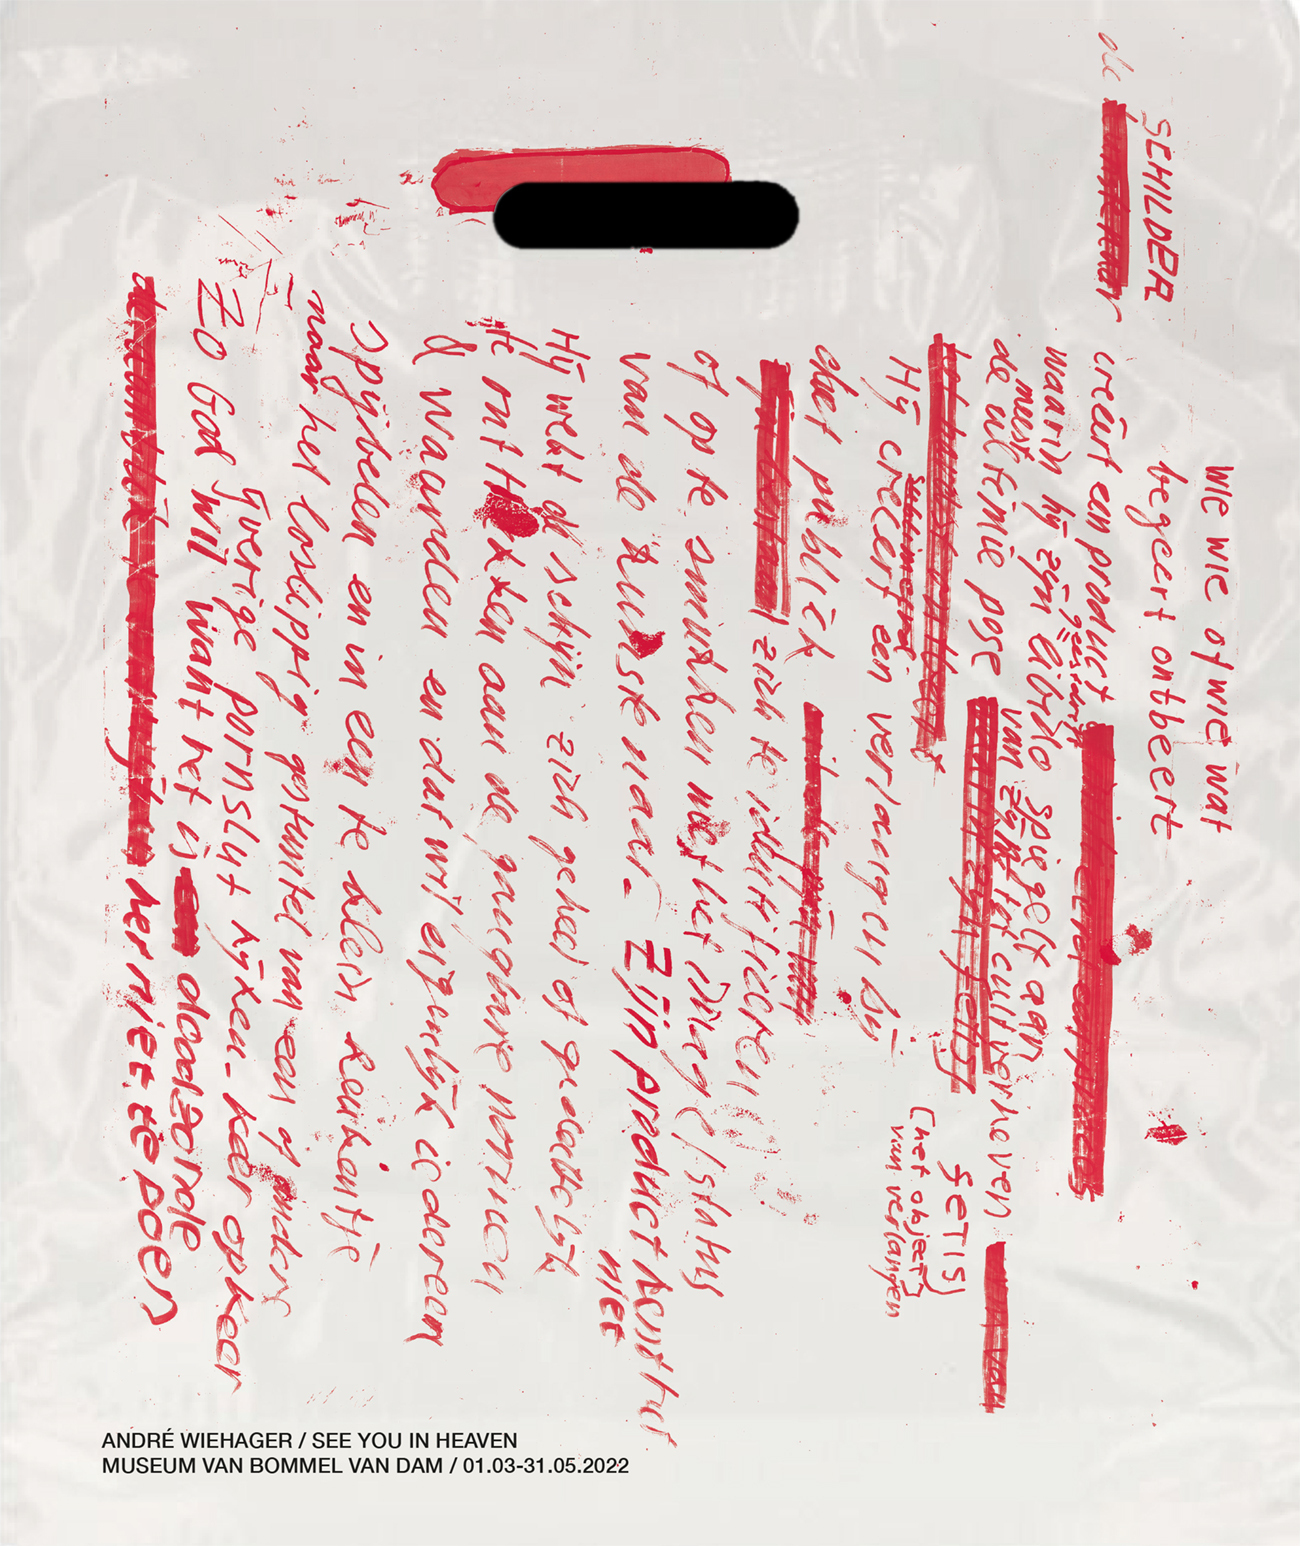 wie wie of wie wat
begeert ontbeert
de SCHILDER
creëert een product
waarin hij zijn libido spiegelt aan
gesierd
meest
de ultieme pose van zijn tot cult verheven
FETIS
(het object
van verlangen)
Hij creëert een verlangen bij
het publiek
zich te identificeren
of op te smukken met het imago / status
van de kunstenaar - Zijn product kunst het
niet
Hij wekt de schijn zich geheel of gedeeltelijk
te onttrekken aan de gangbare normen
& waarden en dat wil eigenlijk iedereen
Spijbelen en in een te klein
naar het loslippig van een of anders
guerige pornslut kijken - keer op keer
Zo God wil want het is doodzonde
her niet te doen
ANDRÉ WIEHAGER / SEE YOU IN HEAVEN
MUSEUM VAN BOMMEL VAN DAM / 01.03-31.05.2022